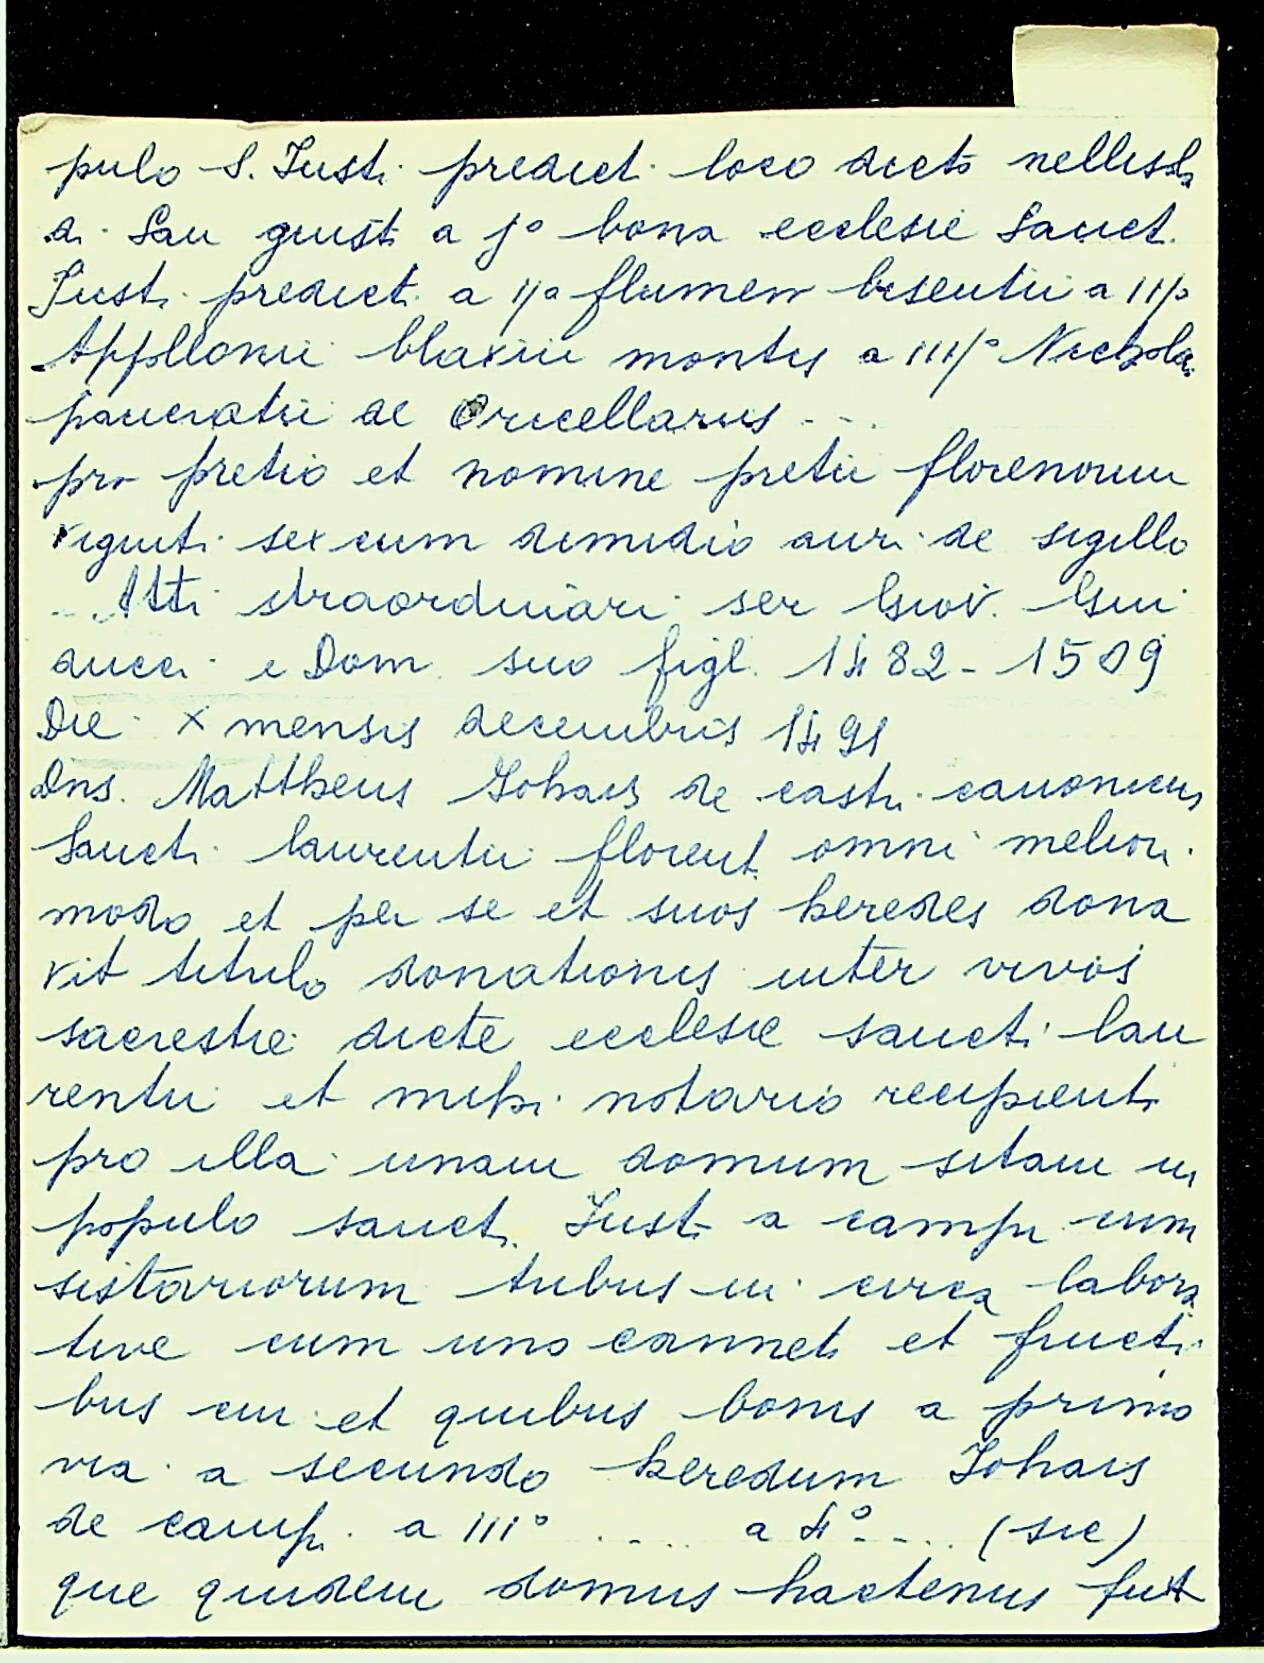 pulo S. Justi predicti loco dicto nellisola
di San giusti a jº bona ecclesie Sancti
Justi predicti a ijº flumen bisentii a iijº
Appollonii blaxii montis a iiijº Nicholai
pancratii de Oricellariis ...
pro pretio et nomine pretii florenorum
viginti sex cum dimidio auri de sigillo
Atti straordinari ser Giov. Gui
ducci e Dom. suo figl. 1482-1509
Die X mensis decembris 1491
Dns. Mattheus Johais de casti canonicus
Sancti laurentii florent. omni meliori
modo et per se et suos heredes dona
vit titulo donationis inter vivos
sacrestie dicte ecclesie sancti lau
rentii et mihi notario recipienti
pro illa unam domum sitam in
populo sancti Justi a campi cum
sistariorum tribus in circa labora
tive cum uno canneti et fructi
bus cui et quibus bonis a primo
via a secundo heredum Johais
de campi a IIIº .... a 4º ... (sic)
que quidem domus hactenus fuit